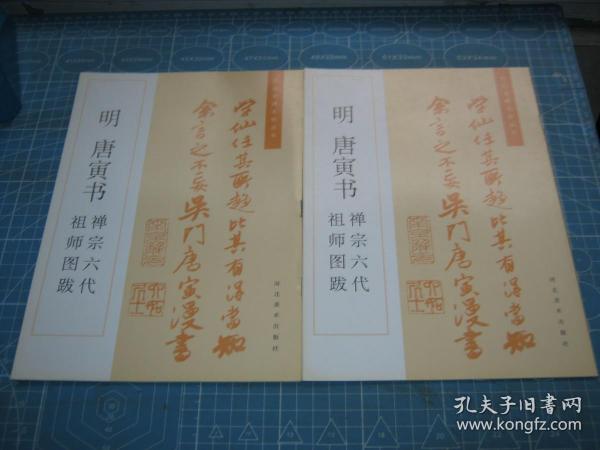 明 唐寅书
禅宗六代
祖师图跋
学仙任其所趋比其有得当知
余言之不妄吴门唐寅漫书
河北美术出版社
明 唐寅书
禅宗六代
祖师图跋
学仙任其所趋比其有得当知
余言之不妄吴门唐寅漫书
河北美术出版社
孔夫子旧书网
www.kongfz.com